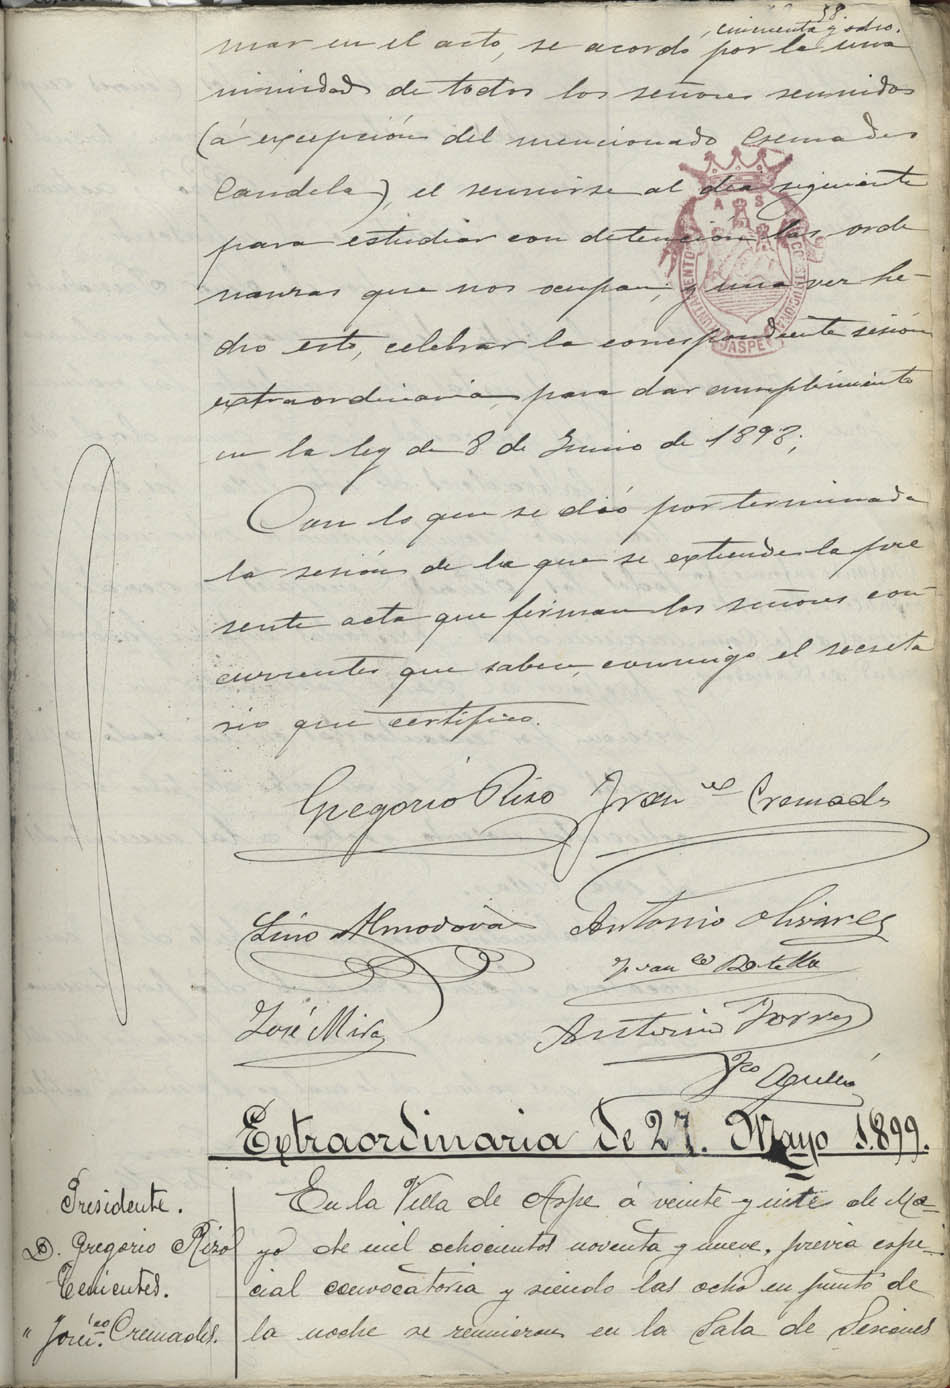 58
cincuenta y ocho.
mar en el acto, se acordó por la una
nimidad de todos los señores reunidos
(á excepción del mencionado Cremades
Candela), el reunirse al dia siguiente
para estudiar con detencion las orde
nanzas que nos ocupan, y una vez he-
cho esto, celebrar la correspondiente sesión
extraordinaria, para dar cumplimiento
en la ley de 8 de Junio de 1898;
Con lo que se dió por terminada
la sesión de la que se extiende la pre
sente acta que firman los señores con-
currentes que saben, conmigo el secreta
rio que certifico.
Gregorio Rizo Fran co Cremades
Lino Almodóvar Antonio Olivares
Fran co Botella
José Mira Antonio Torres
Fco
Extraordinaria de 27. Mayo 1.899.
Presidente.
D. Gregorio Rizo
Tenientes.
" Cremades.
En la Villa de Aspe á veinte y siete de Ma-
yo de mil ochocientos noventa y nueve, previa espe-
cial convocatoria y siendo las ocho en punto de
la noche se reunieron en la Sala de Sesiones
AYUNTAMIENTO CONSTITUCIONAL
ASPE